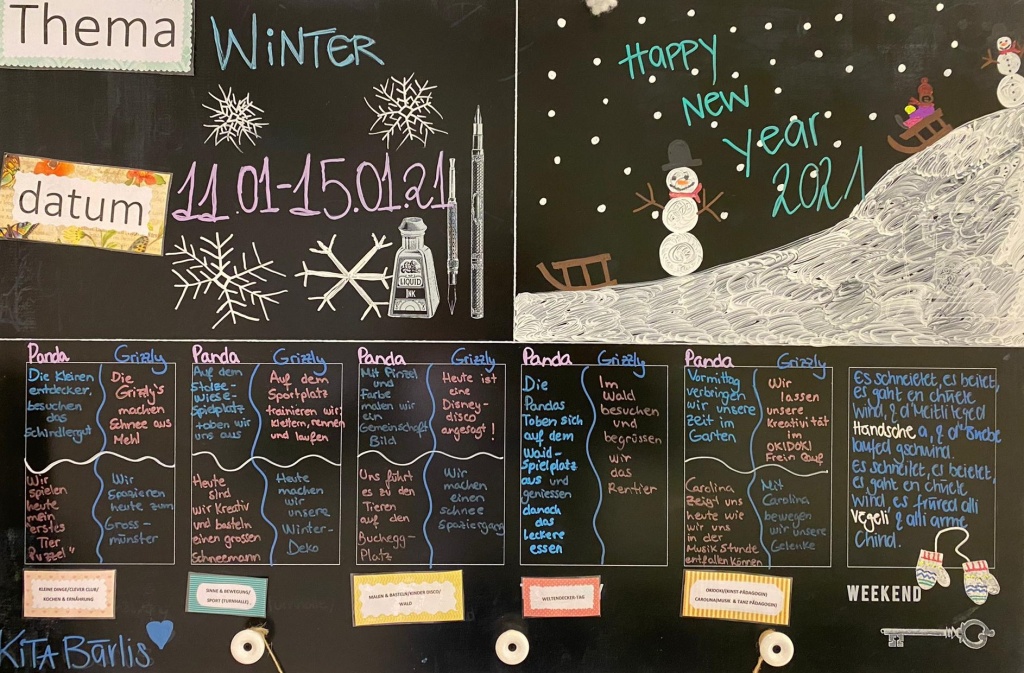 Thema
WiNTER
datum
11.01-15.01.21
LIQUID
INK
Happy
New
year
2021
Panda
Grizzly
Die Kleinen
entdecker,
besuchen
das
Schindlergut
Die
Grizzly's
machen
Schnee aus
Mehl
Wir
spielen
heute
mein
erstes
Tier
Puzzel"
Wir
Spazieren
heute zum
Gross-
münster
Panda
Grizzly
Auf dem
Stolze-
Wiese-
Spielplatz
toben wir
uns aus
Auf dem
Sportplatz
trainieren wir;
Klettern, rennen
und laufen
Heute
sind
wir Kreativ
und basteln
einen grossen
Schneemann
Heute
machen
wir
unsere
Winter-
Deko
Panda
Grizzly
Mit Pinzel
und
Farbe
malen wir
ein
Gemeinschaft
Bild
Heute ist
eine
Disney-
disco
angesagt!
Uns führt
es zu den
Tieren
auf den
Buchegg-
Platz
Wir
machen
einen
schnee
Spaziergang
Panda
Grizzly
Die
Pandas
Toben sich
auf dem
Waid-
Spielplatz
aus und
geniessen
danach
das
leckere
essen
Im
Wald
besuchen
und
begrüssen
wir
das
Rentier
Panda
Grizzly
Vormittag
verbringen
wir unsere
Zeit im
Garten
Wir
lassen
unsere
Kreativität
im
OKIDOKI
Frein Lauf
Carolina
zeigt uns
heute wie
wir uns
in der
Musik Stunde
entfallen können
Mit
Carolina
bewegen
wir unsere
Gelenke
Es schneielet, es beielet,
es gaht en chüele
Wind,
Händsche a,
laufed gschwind.
Es schneielet, es beielet,
es gaht en chüele
wind, es früred alli
Vögeli & alli arme
Chind.
WEEKEND
KLEINE DINGE/CLEVER CLUB/
KOCHEN & ERNÄHRUNG
SINNE & BEWEGUNG/
SPORT (TURNHALLE)
MALEN & BASTELN/KINDER DISCO/
WALD
WELTENDECKER-TAG
OKIDOKI(KUNST-PÄDAGOGIN)
CAROLINA(MUSIK & TANZ PÄDAGOGIN)
KiTA Bärlis